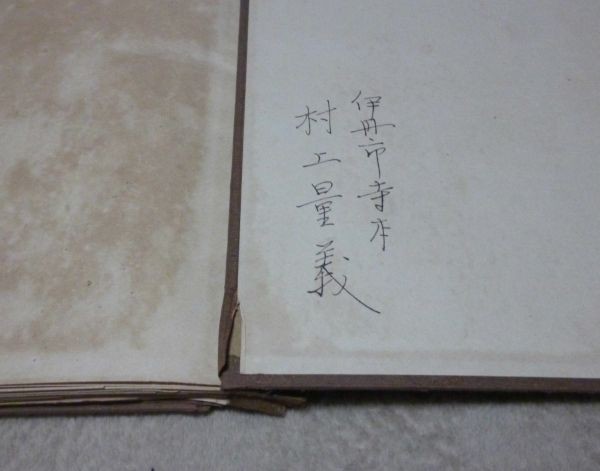 伊丹市寺本
村上量義